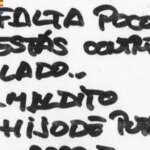 FALTA POCO
ESTÁS CONTRI
LADO..
MALDITO
HIJO DE PUT